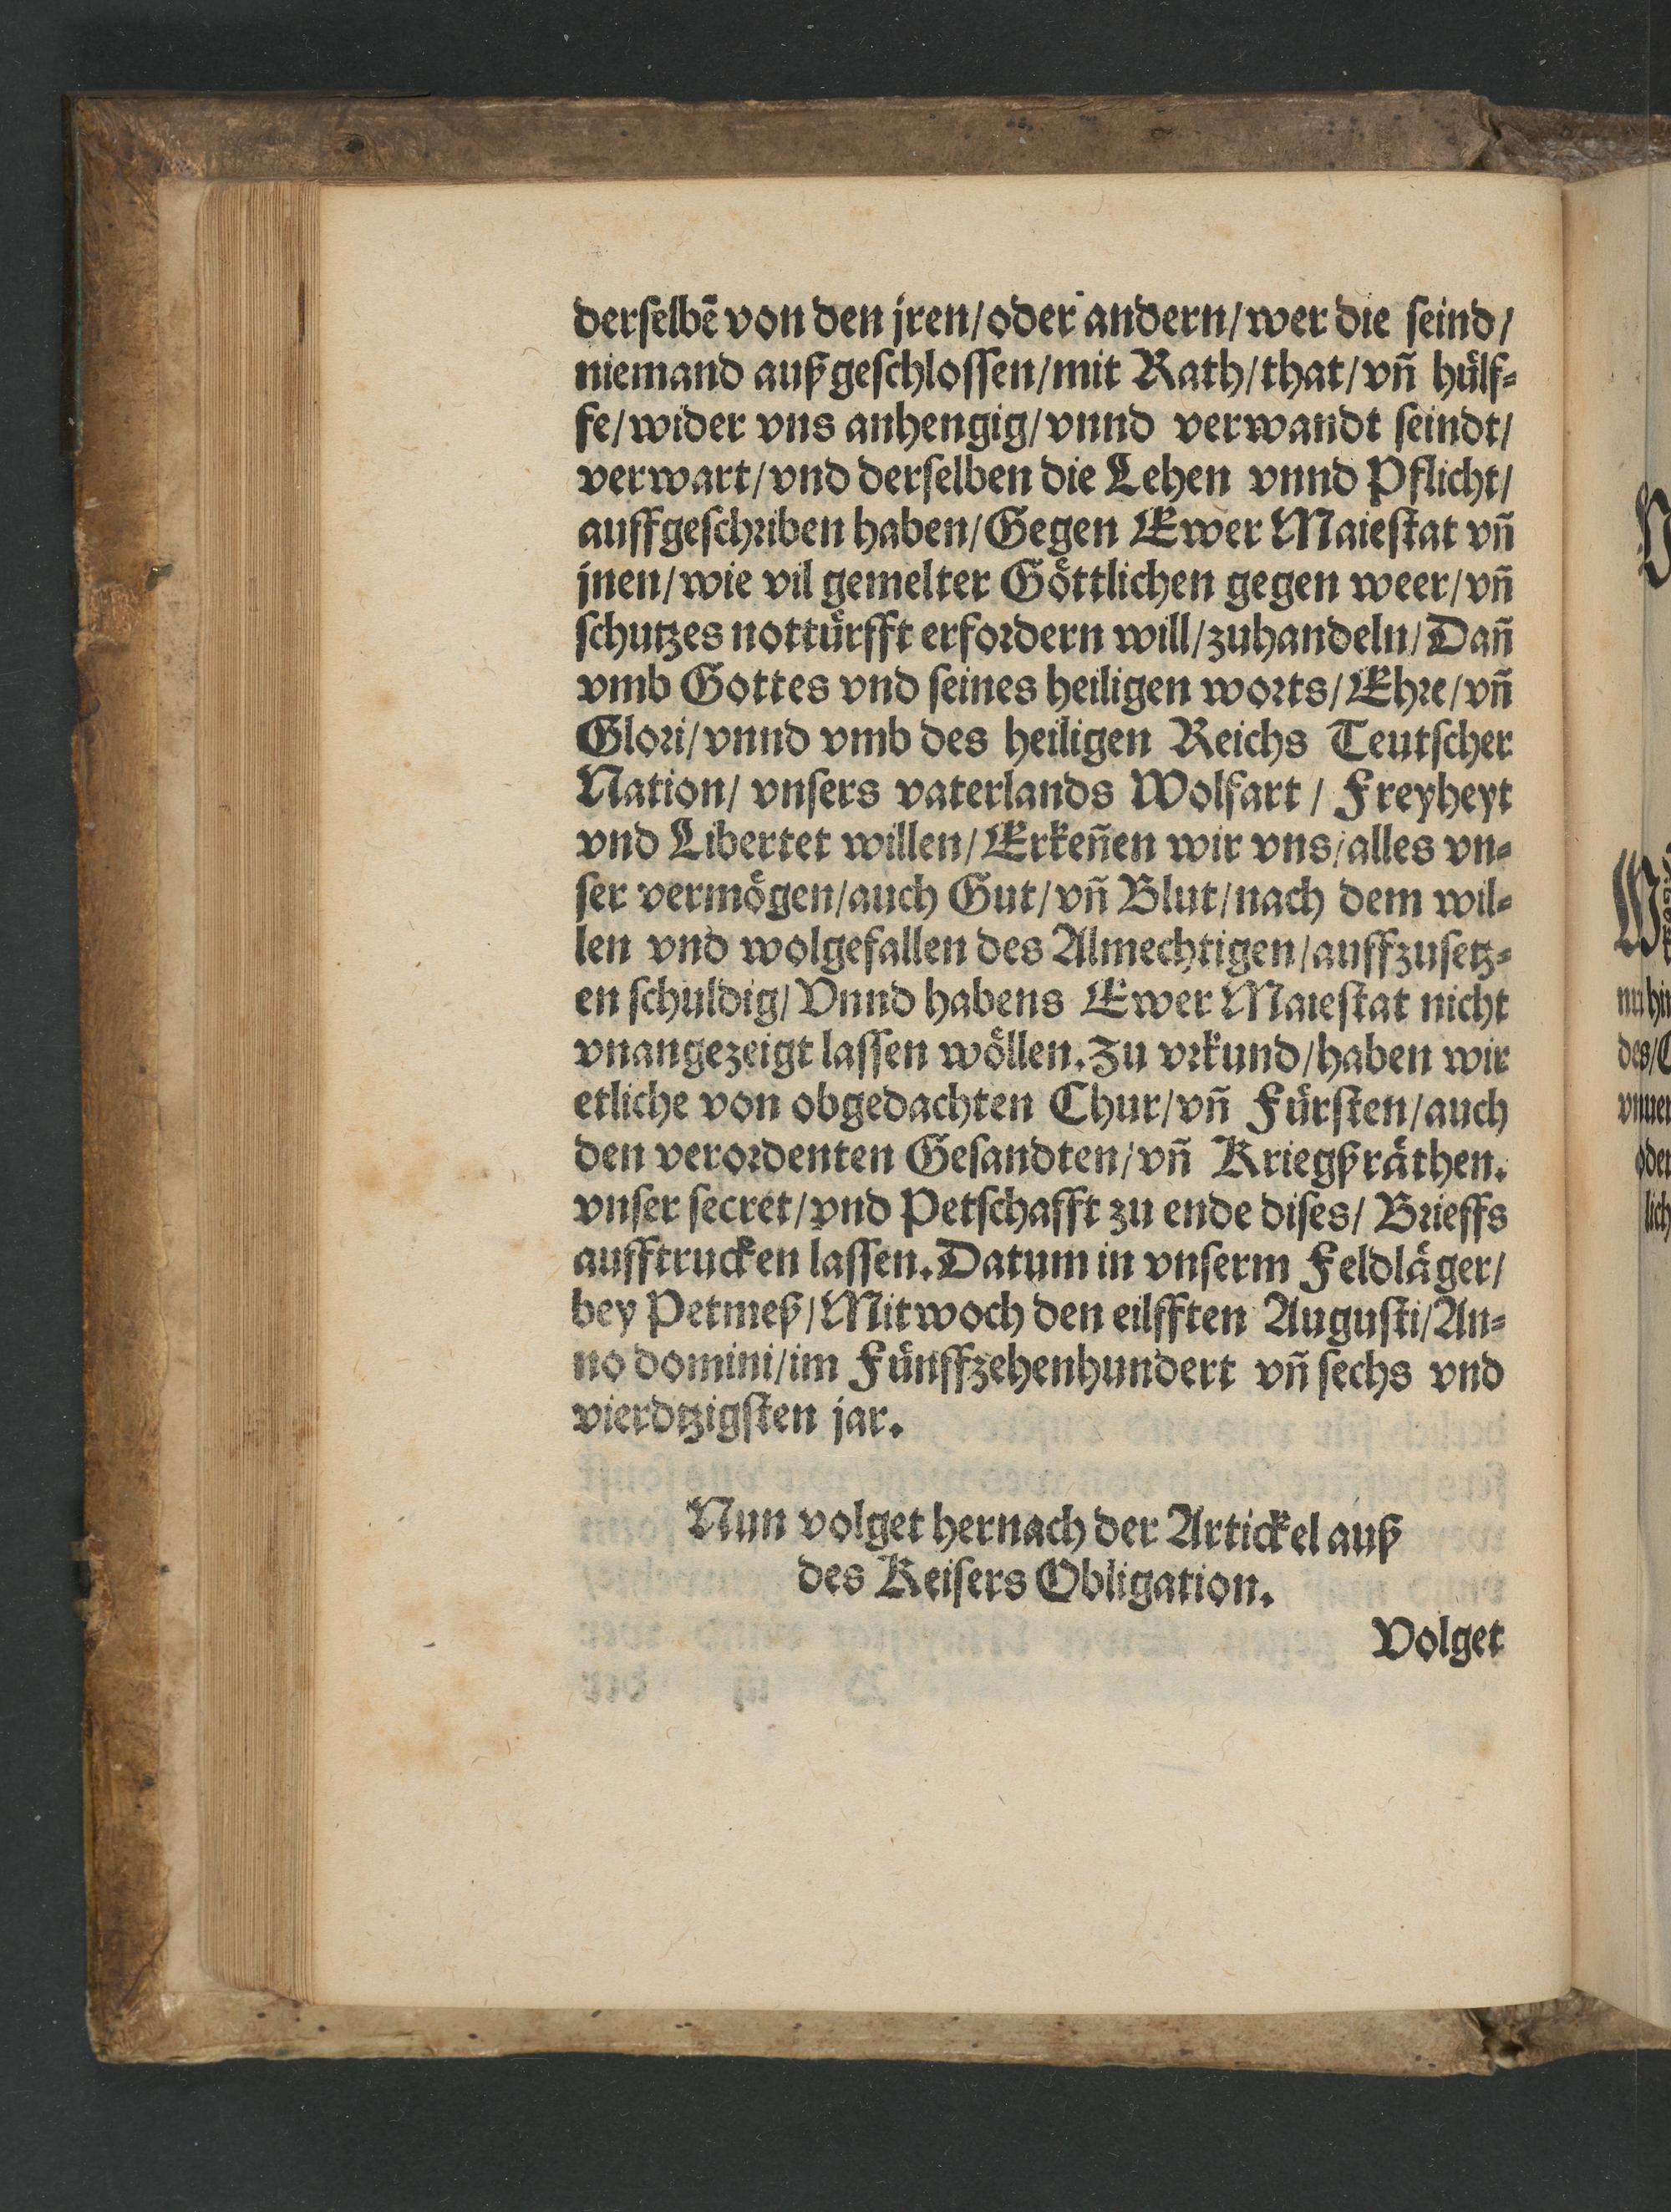 derſelbẽ von den jren/oder andern/wer die ſeind/
niemand außgeſchloſſen/mit Rath/that/vñ hülf⸗
fe/wider vns anhengig/vnnd verwandt ſeindt/
verwart/vnd derſelben die Lehen vnnd Pflicht/
auffgeſchꝛiben haben/Gegen Ewer Maieſtat vñ
jnen/wie vil gemelter Göttlichen gegen weer/vñ
ſchutzes nottürfft erfoꝛdern will/zuhandeln/Dañ
vmb Gottes vnd ſeines heiligen woꝛts/Ehꝛe/vñ
Gloꝛi/vnnd vmb des heiligen Reichs Teutſcher
Nation/ vnſers vaterlands Wolfart / Freyheyt
vnd Libertet willen/Erkeñen wir vns/alles vn⸗
ſer vermögen/auch Gut/vñ Blut/nach dem wil⸗
len vnd wolgefallen des Almechtigen/auffzuſetz⸗
en ſchuldig/Vnnd habens Ewer Maieſtat nicht
vnangezeigt laſſen wöllen.Zu vꝛkund/haben wir
etliche von obgedachten Chur/vñ Fürſten/auch
den veroꝛdenten Geſandten/vñ Kriegßräthen.
vnſer ſecret/vnd Petſchafft zu ende diſes/ Bꝛieffs
aufftrucken laſſen.Datum in vnſerm Feldläger/
bey Petmeß/Mitwoch den eilfften Auguſti/An⸗
no domini/im Fünffzehenhundert vñ ſechs vnd
vierdtzigſten jar.
Nun volget hernach der Artickel auß
des Keiſers Obligation.
Volget